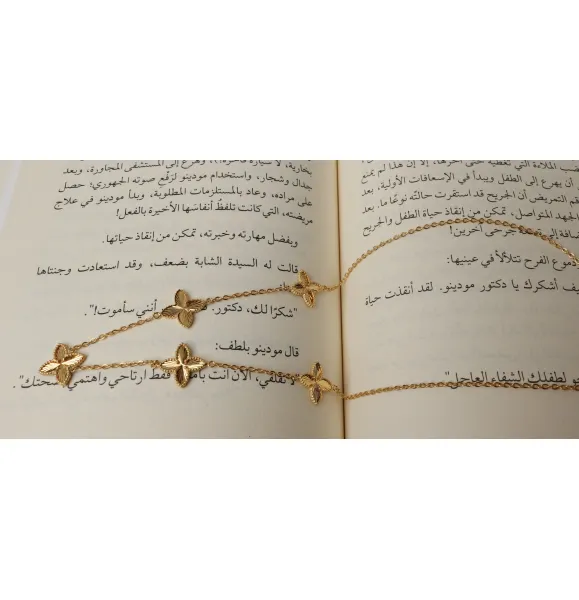 ضب الملاءة التي تغطيه حتى آخرها، إلا إن هذا لم يمنع
أن يهرع إلى الطفل ويبدأ في الإسعافات الأولية. بعد
قم التمريض أن الجريح قد استقرت حالته نوعًا ما. بعد
الجهد المتواصل، تمكن من إنقاذ حياة الطفل والجريح
ضافة إلى جرحى آخرين!
دموع الفرح تتلألأ في عينيها:
يف أشكرك يا دكتور مودينو. لقد أنقذت حياة
و لطفلك الشفاء العاجل"
بخارية، لا سيارة وهرع إلى المستشفى المجاورة، وبعد
جدال وشجار، واستخدام مودينو لرفع صوته الجهوري؛ حصل
على مراده، وعاد بالمستلزمات المطلوبة، وبدأ مودينو في علاج
مريضته، التي كانت تلفظ أنفاسها الأخيرة بالفعل!
وبفضل مهارته وخبرته، تمكن من إنقاذ حياتها.
قالت له السيدة الشابة بضعف، وقد استعادت وجنتاها
"شكرًا لك، دكتور. أنني سأموت!".
قال مودينو بلطف:
"لا تقلقي، الآن أنت فقط ارتاحي واهتمي